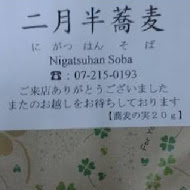 二月半蕎麦
にがつはん そば
Nigatsuhan Soba
☎:07-215-0193
ご来店ありがとうございました
またのお越しをお待ちしております
【蕎麦の実20g】